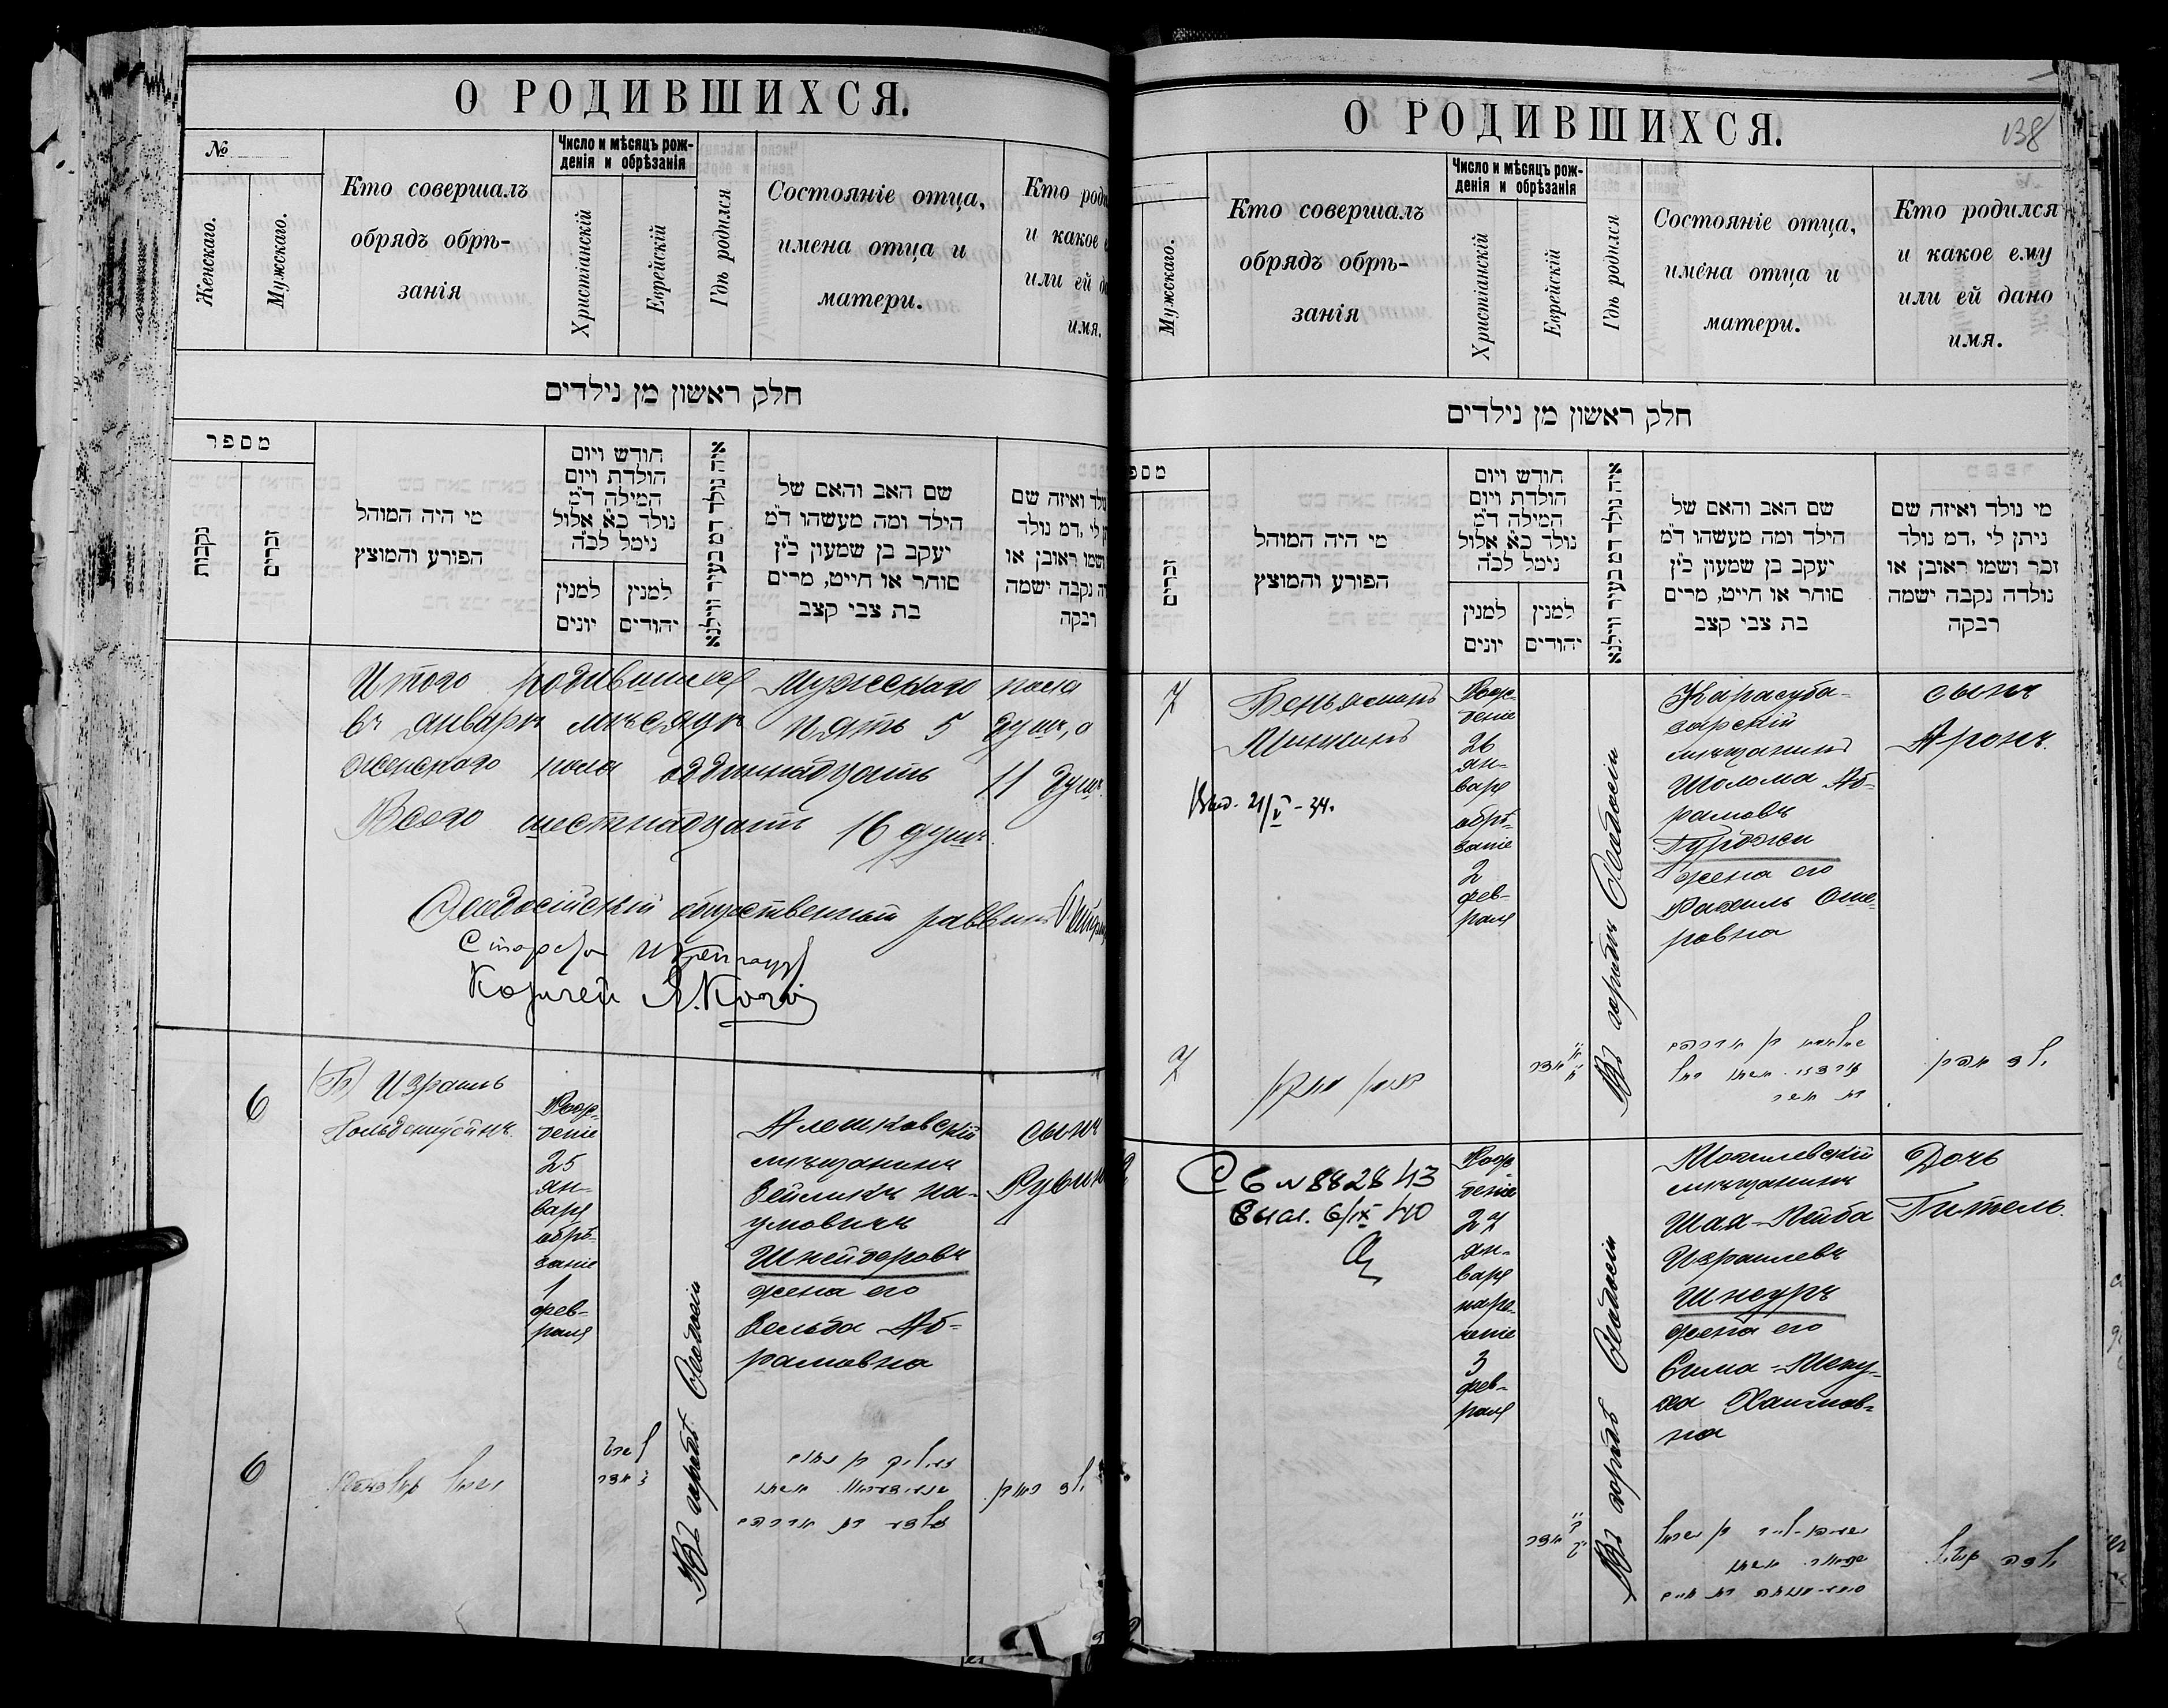 О РОДИВШИХСЯ.
№
Женскаго.
Мужскаго.
Кто совершалъ
обрядъ обрѣ-
занія
Число и мѣсяцъ рож-
денія и обрѣзанія
Христіанскій
Еврейскій
Гдѣ родился
Состояніе отца,
имена отца и
матери.
Кто роди
и какое е
или ей да
имя.
חלק ראשון מן נילדים
מספר
נקבות
זכרים
מי היה המוהל
הפורע והמוצץ
חודש ויום
הולדת ויום
המילה ד״מ
נולד כ״א אלול
נימל לכ״ה
למנין
יונים
למנין
יהודים
איה נולד דמ בעיר ווילנא
שם האב והאם של
הילד ומה מעשהו ד״מ
יעקב בן שמעון כ״ץ
סוחר או חייט, מרים
בת צבי קצב
ולד ואיזה שם
לי, דמ נולד
ושמו ראובן או
נקבה ישמה
רבקה
Итого родившихся мужскаго пола
въ январѣ мѣсяцѣ пять 5 душъ, а
женскаго пола одиннадцать 11 душъ.
Всего шестнадцать 16 душъ.
Ѳеодосійскій общественный раввинъ
Староста
Казначей
6
(Б) Израиль
Гольденштейнъ.
Рож-
деніе
25
ян-
варя
обрѣ-
заніе
1
фев-
раля
Въ городѣ Ѳеодосіи
Алешковскій
мѣщанинъ
Зейликъ На-
умовичъ
Шнейдеровъ
жена его
Зельда Аб-
рамовна
сынъ
Рувинъ
6
О РОДИВШИХСЯ.
138
Мужскаго.
Кто совершалъ
обрядъ обрѣ-
занія
Число и мѣсяцъ рож-
денія и обрѣзанія
Христіанскій
Еврейскій
Гдѣ родился
Состояніе отца,
имена отца и
матери.
Кто родился
и какое ему
или ей дано
имя.
חלק ראשון מן נילדים
מספ
זכרים
מי היה המוהל
הפורע והמוצץ
חודש ויום
הולדת ויום
המילה ד״מ
נולד כ״א אלול
נימל לכ״ה
למנין
יונים
למנין
יהודים
איה נולד דמ בעיר ווילנא
שם האב והאם של
הילד ומה מעשהו ד״מ
יעקב בן שמעון כ״ץ
סוחר או חייט, מרים
בת צבי קצב
מי נולד ואיזה שם
ניתן לי, דמ נולד
זכר ושמו ראובן או
נולדה נקבה ישמה
רבקה
7
Беньяминъ
Минкинъ
Выд. 21/V-34.
Рож-
деніе
26
ян-
варя
обрѣ-
заніе
2
фев-
раля
Въ городѣ Ѳеодосіи
Карасуба-
зарскій
мѣщанинъ
Шолома Аб-
рамовъ
Гурджи
жена его
Рахиль Оше-
ровна
сынъ
Аронъ.
7
С 6 N 882843
Выд. 6/IX 40
Рож
деніе
27
ян-
варя
наре-
ченіе
3
фев-
раля
Въ городѣ Ѳеодосіи
Могилевскій
мѣщанинъ
Шая-Лейба
Израилевъ
Шнеуръ
жена его
Сима-Мену-
ха Хаимов-
на
Дочь
Гитель.